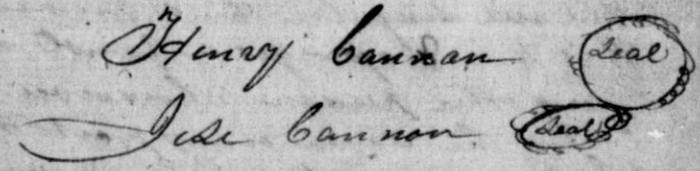 Henry Cannan Seal
Jese Cannon Seal